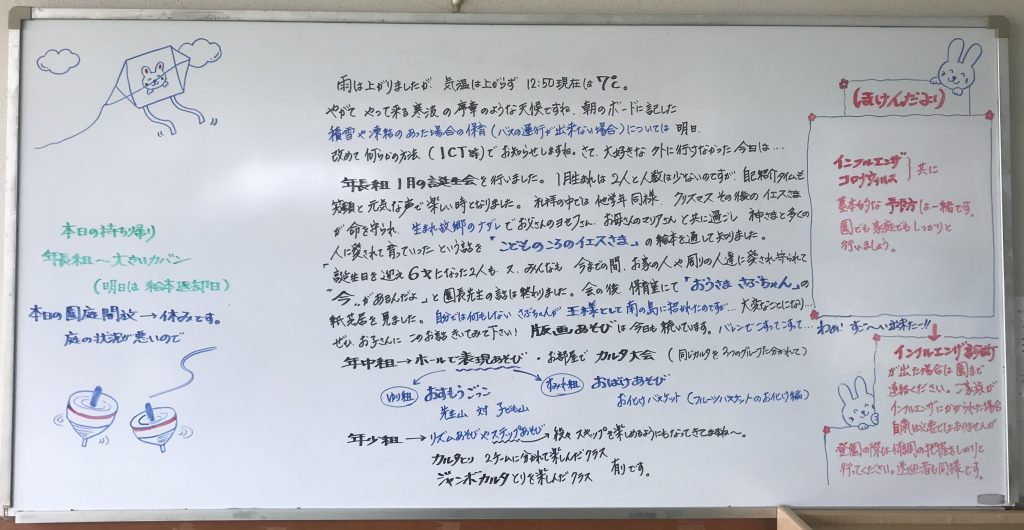 雨は上がりましたが、気温は上がらず 12:50現在は7℃。
やがて やって来る寒波の序章のような天候ですね。朝のボードに記した
積雪や凍結のあった場合の保育(バスの運行が出来ない場合)については 明日、
改めて 何らかの方法(ICT等)でお知らせしますね。さて、大好きな 外に行けなかった 今日は…
年長組 1月の誕生会を行いました。1月生まれは 2人と人数は少ないのですが、自己紹介タイムも
笑顔と元気な声で楽しい時となりました。礼拝の中では 他学年同様、クリスマス その後の イエスさま
が命を守られ、生まれ故郷のナザレで お父さんのヨセフさん、お母さんのマリアさん と共に過ごし 神さまと多くの
人に愛されて育っていった という話を「こどものころのイエスさま」の絵本を通して知りました。
「誕生日を迎え 6才になった2人も、又、みんなも 今までの間、お家の人や周りの人達に愛され守られて
"今"があるんだよ」と園長先生の話は終わりました。会の後 保育室にて「おうさま さぶちゃん」の
紙芝居を見ました。自分では何もしない さぶちゃんが 王様として 南の島に招かれたのですが… 大変なことになり…
ぜひ、お子さんに このお話 きいてみて下さい! 版画あそびは今日も続いています。バレンでこすってこすって… わぁ! すご〜い 出来た〜!!
年中組→ホールで表現あそび ・お部屋で カルタ大会 (同じカルタを3つのグループに分かれて)
ゆり組 おすもうごっこ
先生山 対 子ども山
すみれ組 おばけあそび
お化けバスケット (フルーツバスケットのお化け編)
年少組→リズムあそびやスキップあそび→段々 スキップを楽しめるようにもなってきてますね〜。
カルタとり 2チームに分かれて楽しんだクラス
ジャンボカルタとりを楽しんだクラス 有りです。
本日の持ち帰り
年長組〜大きいカバン
(明日は 絵本返却日)
本日の園庭開放→休みです。
庭の状況が悪いので
ほけんだより
インフルエンザ
コロナウィルス 共に
基本的な 予防は一緒です。
園でも家庭でもしっかりと
行いましょう。
インフルエンザ
が出た場合は 園まで
連絡ください。ご家族が
インフルエンザにかかられた場合
自粛は必要ではありませんが
登園の際は 体調の把握をしっかりと
行ってください。送迎者も同様です。